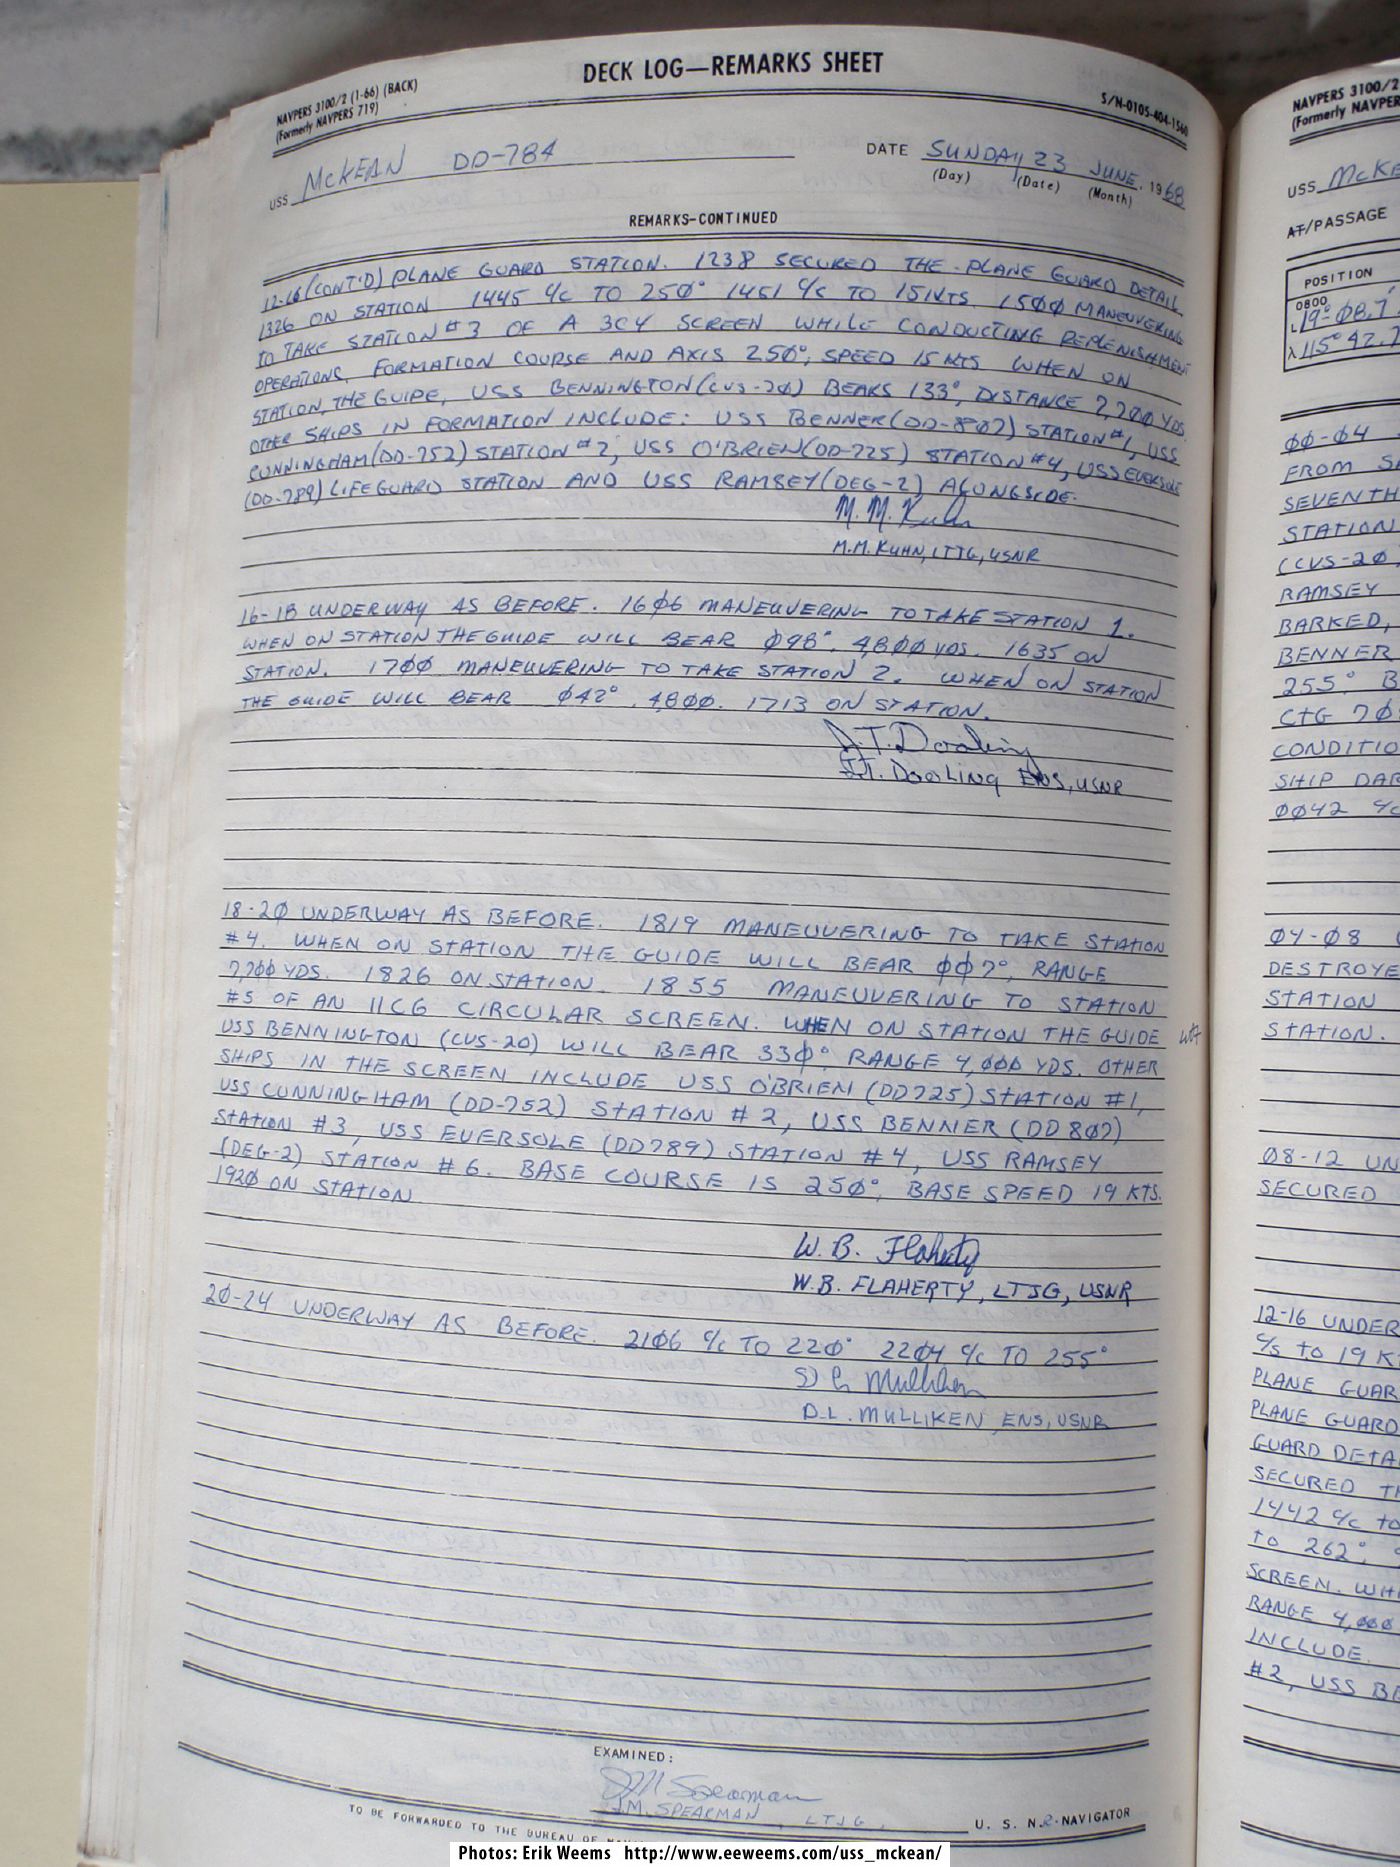 DECK LOG—REMARKS SHEET
NAVPERS 3100/2 (1-66) (BACK)
(Formerly NAVPERS 719)
S/N-0105-404-1560
USS McKEAN DD-784
DATE SUNDAY, 23 JUNE, 1968
(Day) (Date) (Month)
REMARKS-CONTINUED
12-16 (CONT'D) PLANE GUARD STATION. 1238 SECURED THE PLANE GUARD DETAIL.
1326 ON STATION 1445 C/C TO 250° 1451 C/C TO 15 KTS. 1500 MANEUVERING
TO TAKE STATION #3 OF A 3C4 SCREEN WHILE CONDUCTING REPLENISHMENT
OPERATIONS, FORMATION COURSE AND AXIS 250°, SPEED 15 KTS WHEN ON
STATION, THE GUIDE, USS BENNINGTON (CVS-20) BEARS 133°, DISTANCE 2,200 YDS.
OTHER SHIPS IN FORMATION INCLUDE: USS BENNER (DD-807) STATION #1, USS
CUNNINGHAM (DD-752) STATION #2, USS O'BRIEN (DD-725) STATION #4, USS EVERSOLE
(DD-789) LIFEGUARD STATION AND USS RAMSEY (DEG-2) ALONGSIDE.
M. M. Kuhn
M.M. KUHN, LTJG, USNR
16-18 UNDERWAY AS BEFORE. 1606 MANEUVERING TO TAKE STATION 1.
WHEN ON STATION THE GUIDE WILL BEAR 098°, 4,800 YDS. 1635 ON
STATION. 1700 MANEUVERING TO TAKE STATION 2. WHEN ON STATION
THE GUIDE WILL BEAR 042°, 4,800. 1713 ON STATION.
J. T. Dooling
J.T. DOOLING ENS, USNR
18-20 UNDERWAY AS BEFORE. 1819 MANEUVERING TO TAKE STATION
#4. WHEN ON STATION THE GUIDE WILL BEAR 007°, RANGE
2,200 YDS. 1826 ON STATION. 1855 MANEUVERING TO STATION
#5 OF AN 11C6 CIRCULAR SCREEN. WHEN ON STATION THE GUIDE
USS BENNINGTON (CVS-20) WILL BEAR 330° RANGE 4,000 YDS. OTHER
SHIPS IN THE SCREEN INCLUDE USS O'BRIEN (DD725) STATION #1,
USS CUNNINGHAM (DD-752) STATION #2, USS BENNER (DD 807)
STATION #3, USS EVERSOLE (DD789) STATION #4, USS RAMSEY
(DEG-2) STATION #6. BASE COURSE IS 250°, BASE SPEED 19 KTS.
1920 ON STATION
W. B. Flaherty
W.B. FLAHERTY, LTJG, USNR
20-24 UNDERWAY AS BEFORE. 2106 C/C TO 220° 2204 C/C TO 255°
D L Mulliken
D.L. MULLIKEN, ENS, USNR
EXAMINED:
J M Spearman
J.M. SPEARMAN, LTJG, U. S. N.R-NAVIGATOR
TO BE FORWARDED TO THE BUREAU OF
NAVPERS 3100/2
(Formerly NAVPER
USS McKE
AT/PASSAGE
POSITION
0800
L 19°-08.7'
λ 115° 42.7
00-04
FROM S
SEVENTH
STATION
(CVS-20,
RAMSEY
BARKED,
BENNER
255° B
CTG 70
CONDITIO
SHIP DAR
0042 C/C
04-08 U
DESTROYE
STATION
STATION.
08-12 UN
SECURED
12-16 UNDER
C/S TO 19 K
PLANE GUAR
PLANE GUARD
GUARD DETA
SECURED TH
1442 C/C TO
TO 262°,
SCREEN. WH
RANGE 4,000
INCLUDE
#2, USS BE
Photos: Erik Weems http://www.eeweems.com/uss_mckean/